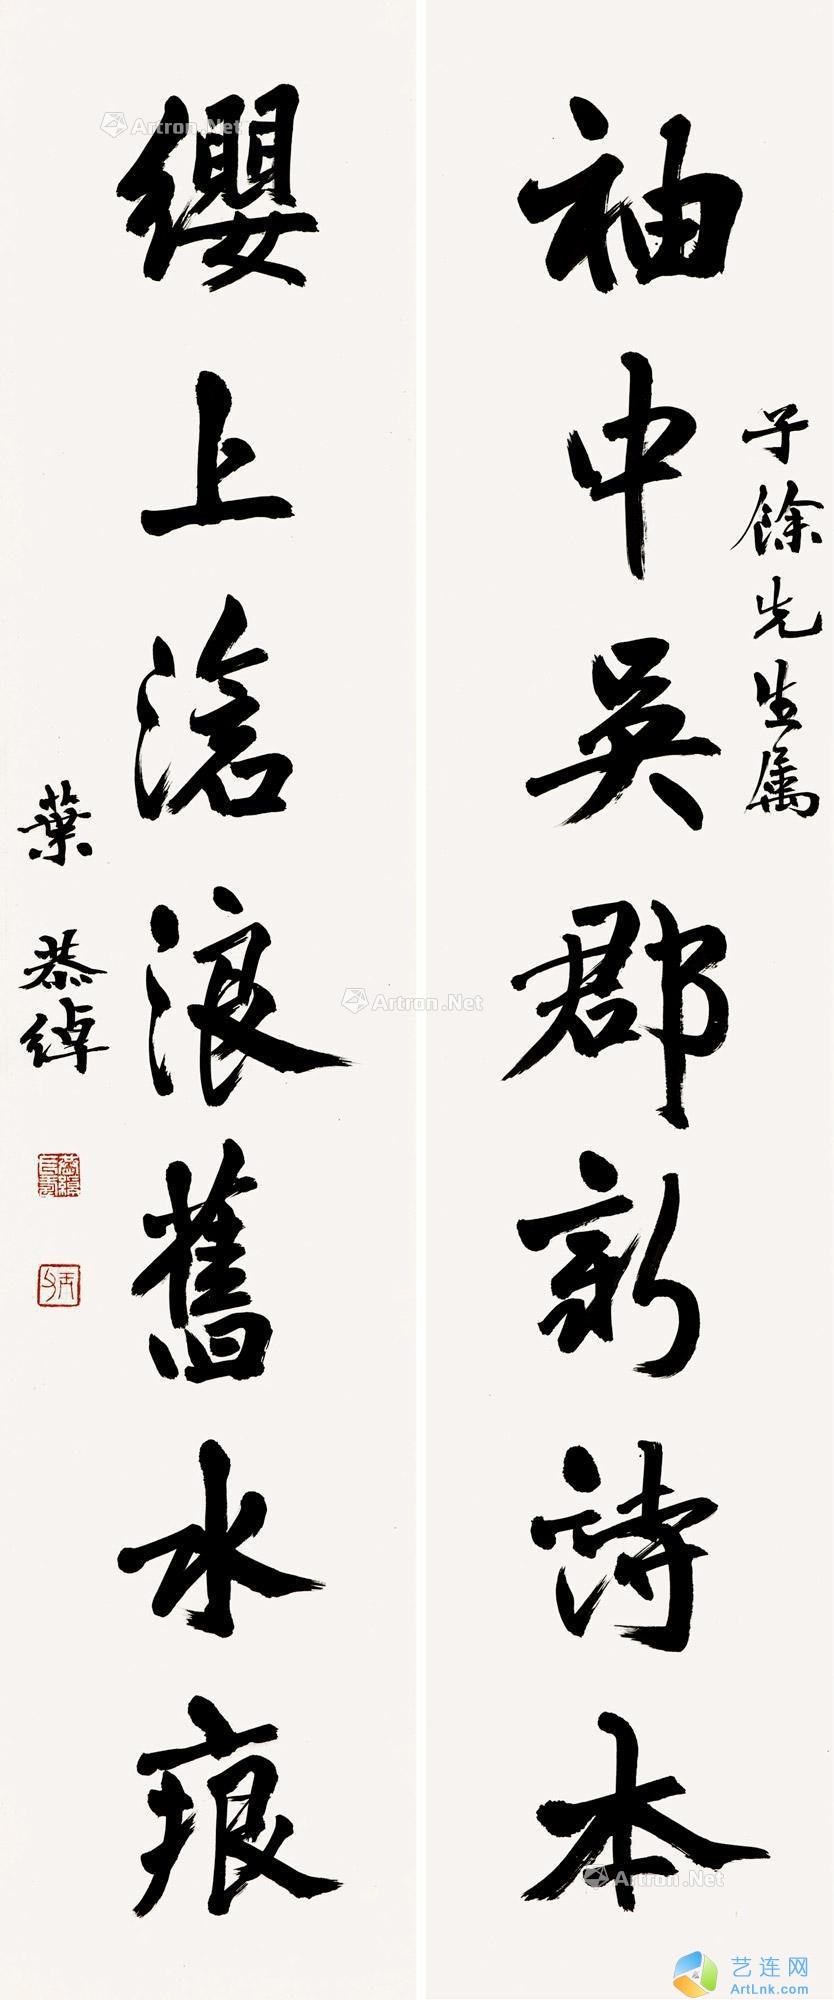 子餘先生属
袖中吳郡新詩本
纓上滄浪舊水痕
葉恭綽
Artron.Net
Artron.Net
Artron.Net
艺连网
ArtLnk.com